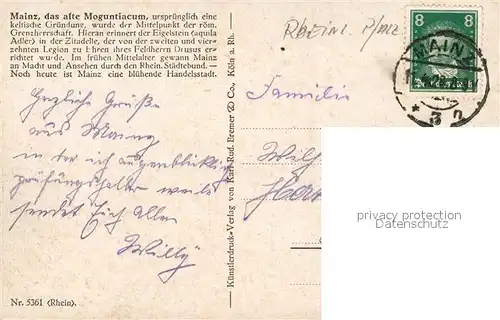 Mainz, das alte Moguntiacum, ursprünglich eine
keltische Gründung, wurde der Mittelpunkt der röm.
Grenzherrschaft. Hieran erinnert der Eigelstein (aquila
Adler) in der Zitadelle, der von der zweiten und vier-
zehnten Legion zu Ehren ihres Feldherrn Drusus er-
richtet wurde. Im frühen Mittelalter gewann Mainz
an Macht und Ansehen durch den Rhein. Städtebund. —
Noch heute ist Mainz eine blühende Handelsstadt.
Herzliche Grüße
aus Mainz
in der ich augenblicklich
prüfungshalber weile
sendet Euch Allen
Willy
Nr. 5361 (Rhein).
Künstlerdruck-Verlag von Karl Rud. Bremer & Co., Köln a. Rh.
RHEINL. PFALZ
8 8
MAINZ
* 3 n
Familie
privacy protection
Datenschutz